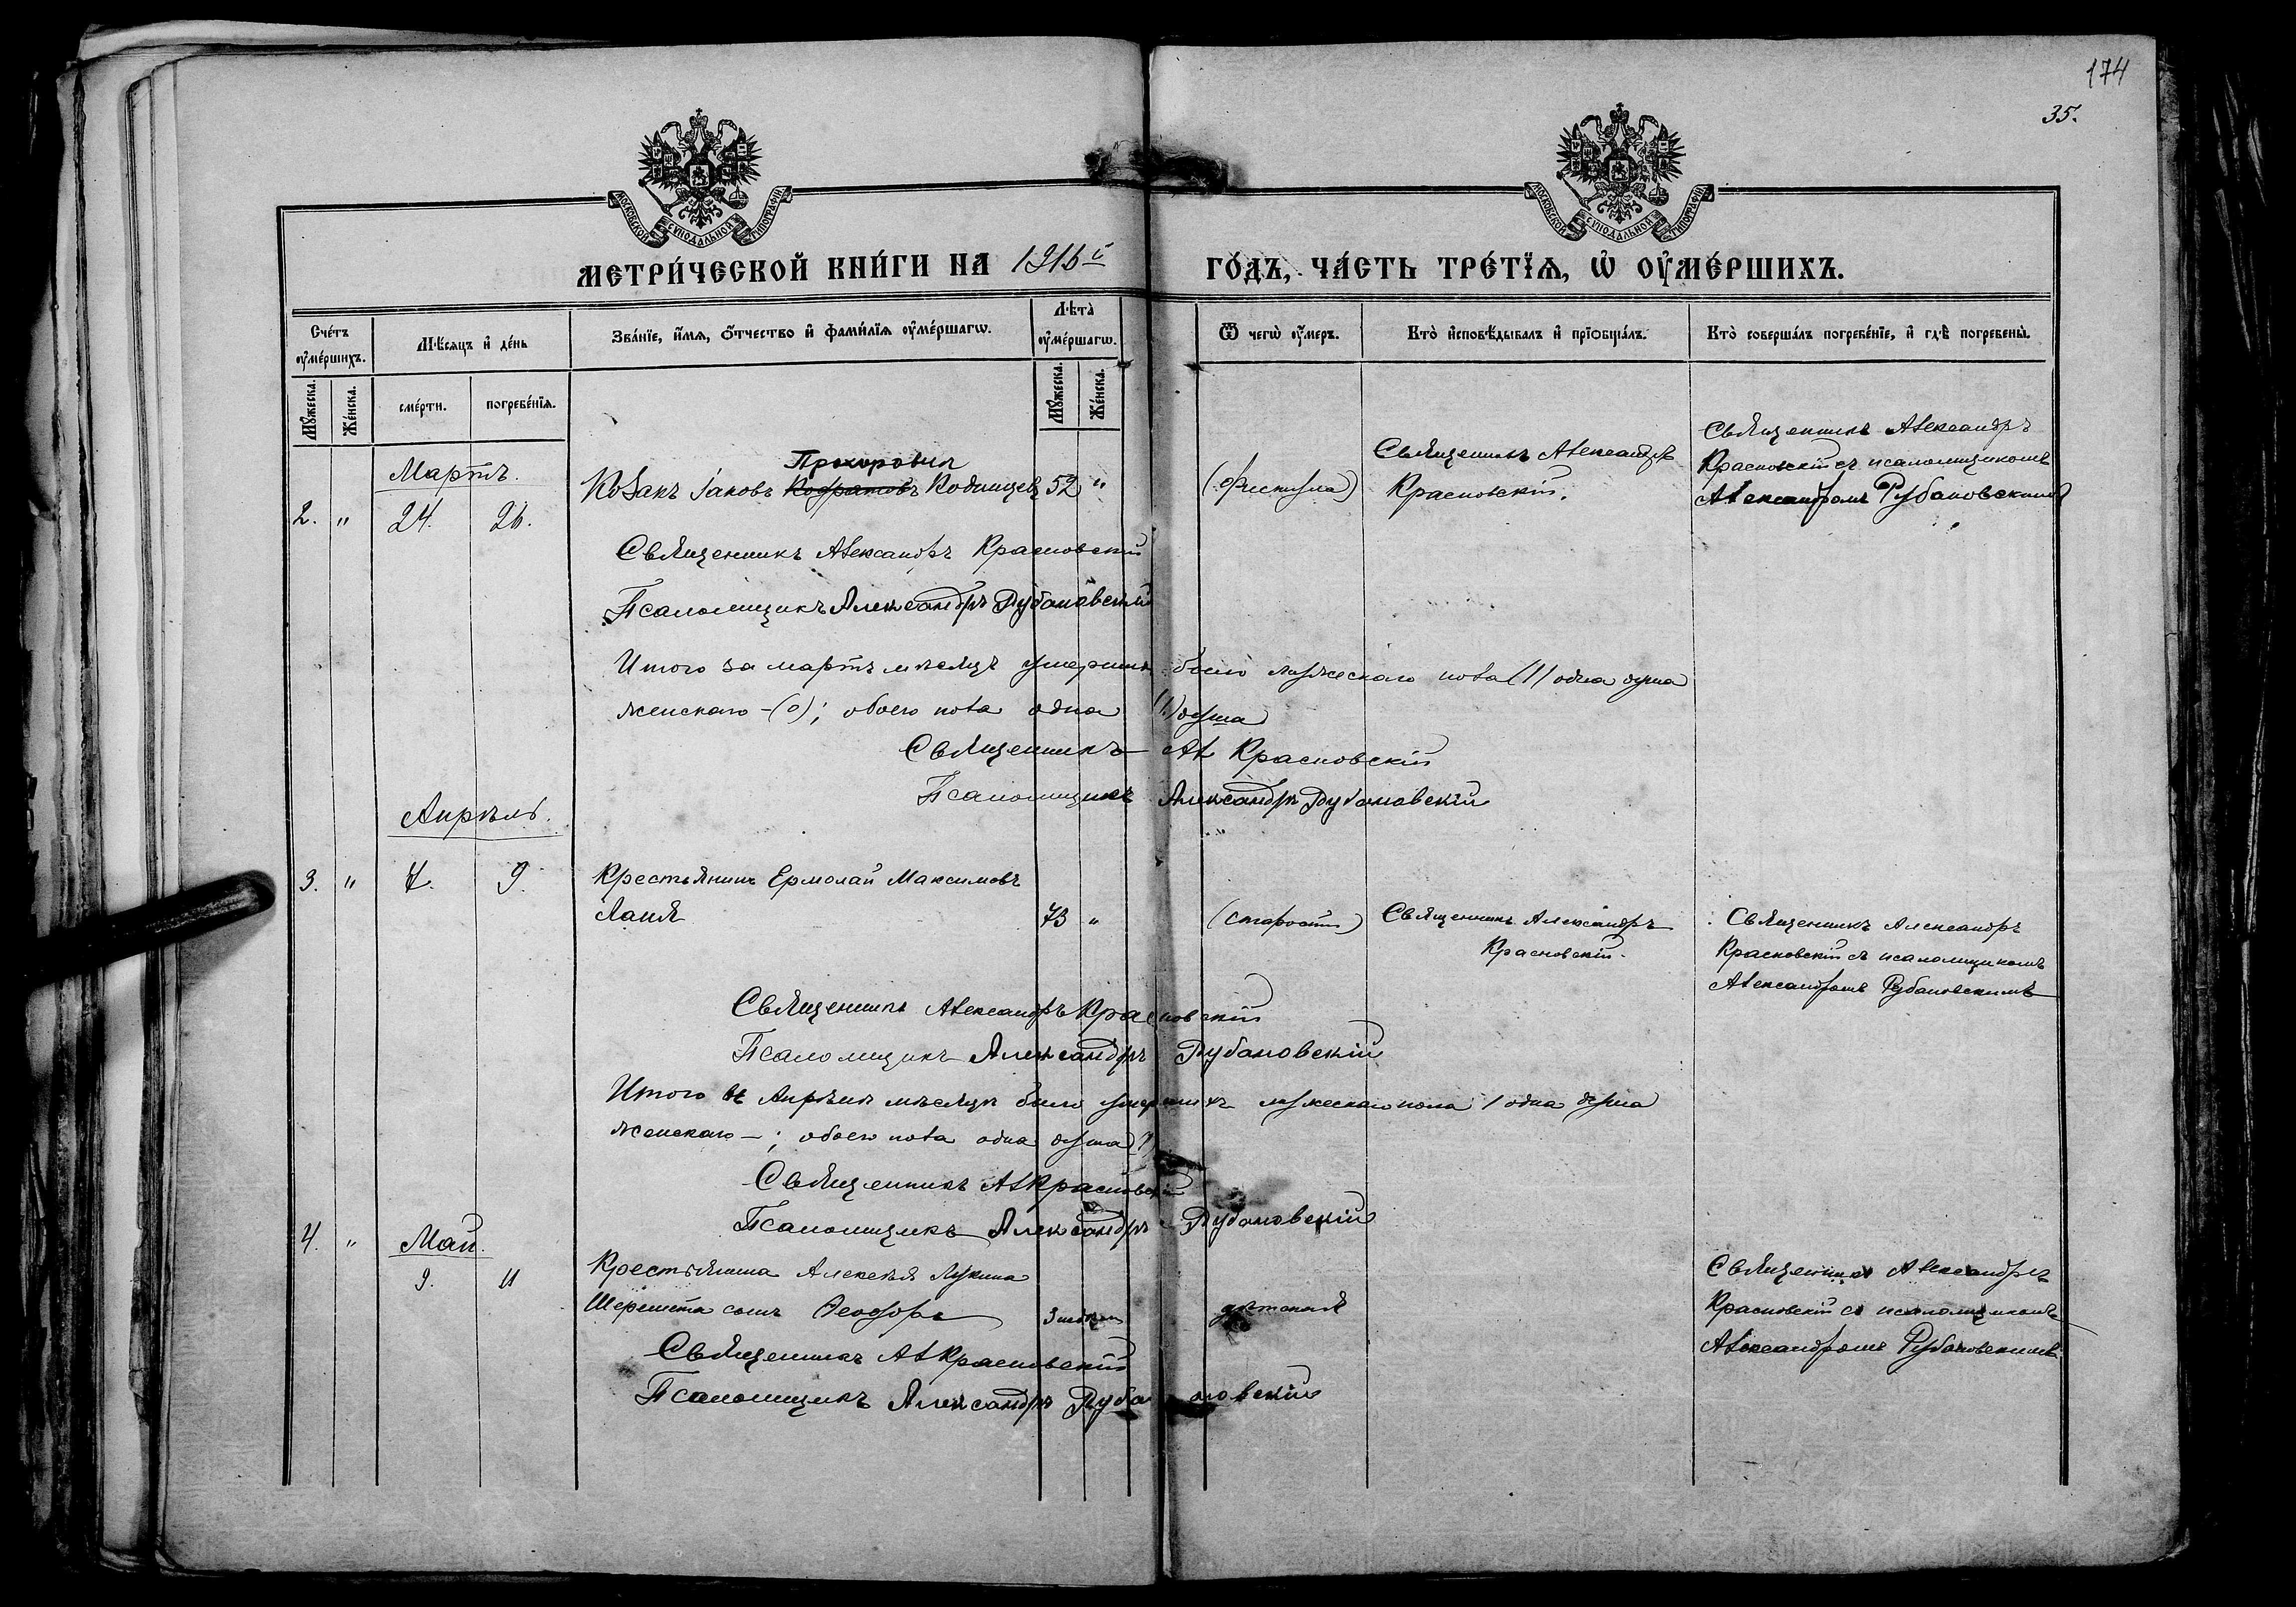 174
35.
МОСКОВСКОЙ СѴНОДАЛЬНОЙ ТИПОГРАФІИ
МОСКОВСКОЙ СѴНОДАЛЬНОЙ ТИПОГРАФІИ
МЕТРИ́ЧЕСКОЙ КНИ́ГИ НА 1916 й ГО́ДЪ, ЧА́СТЬ ТРЕ́ТЇѦ, Ѡ҆ ОУ҆МЕ́РШИХЪ.
Сче́тъ оу҆ме́ршихъ.
Мѣ́сяцъ и҆ де́нь
Зва́нїе, и҆́мѧ, ѻ҆́тчество и҆ фами́лїѧ оу҆ме́ршагѡ.
Лѣта̀ оу҆ме́ршагѡ.
Ѿ чегѡ̀ оу҆́меръ.
Кто̀ и҆сповѣ́дывалъ и҆ прїѡбща́лъ.
Кто̀ соверша́лъ погребе́нїе, и҆ гдѣ̀ погребены̀.
Мꙋ́жеска.
Же́нска.
сме́рти.
погребе́нїѧ.
Мꙋ́жеска.
Же́нска.
Мартъ.
Прохоровъ
2. " 24. 26. Козакъ Іаковъ 52 "
Священникъ Александръ
Красновскій.
Священникъ Александръ
Красновскій съ псаломщикомъ
Александромъ Рубановскимъ
Священникъ Александръ Красновскій
Псаломщикъ Александръ Рубановскій
Итого за мартъ мѣсяцъ умершихъ было мужескаго пола (1) одна душа
женскаго - (0); обоего пола одна (1) душа
Священникъ Ал Красновскій
Псаломщикъ Александръ Рубановскій
Апрѣль.
3. " 7. 9. Крестьянинъ Ермолай Максимовъ
Лапя 73 "
(старости)
Священникъ Александръ
Красновскій.
Священникъ Александръ
Красновскій съ псаломщикомъ
Александромъ Рубановскимъ
Священникъ Александръ Красновскій
Псаломщикъ Александръ Рубановскій
Итого въ Апрѣлѣ мѣсяцѣ было умершихъ мужескаго пола 1 одна душа
женскаго - ; обоего пола одна душа
Священникъ Ал Красновскій
Псаломщикъ Александръ Рубановскій
4. " Май.
9. 11 Крестьянина Алексѣя Лукина
Шеремета сынъ Ѳеодоръ
Священникъ Александръ
Красновскій съ псаломщикомъ
Александромъ Рубановскимъ
Священникъ Ал Красновскій
Псаломщикъ Александръ Рубановскій